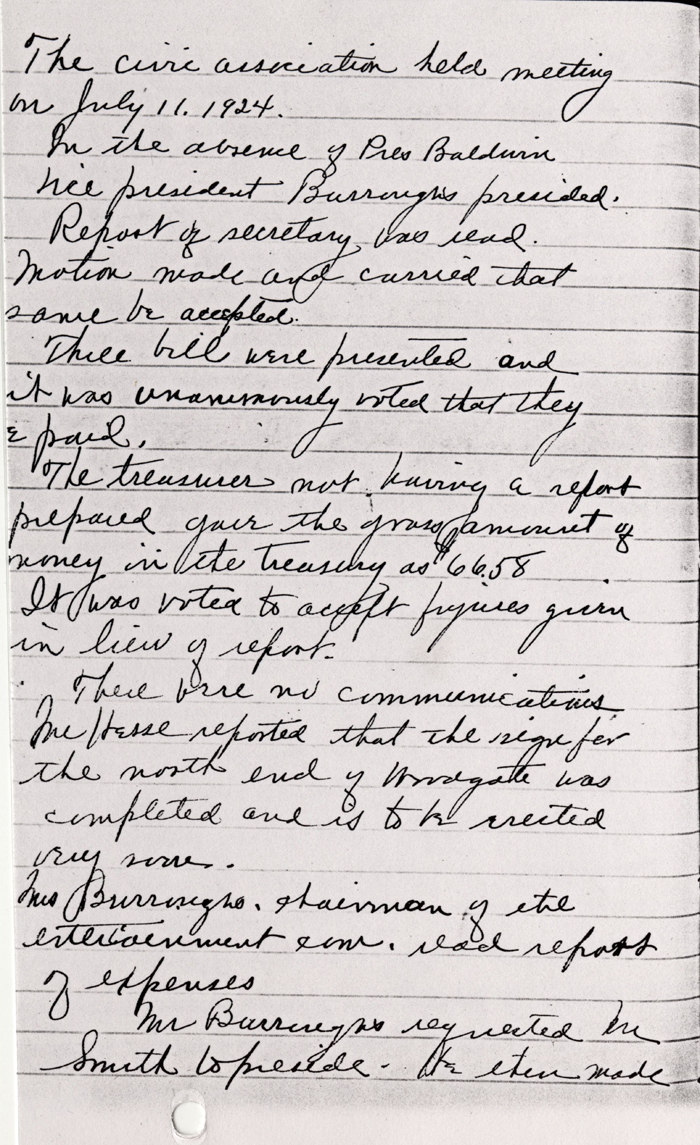 The civic association held meeting
on July 11. 1924.
In the absence of Pres Baldwin
Vice president Burroughs presided.
Report of secretary was read.
Motion made and carried that
same be accepted.
Three bill were presented and
it was unanimously voted that they
e paid.
The treasurer not having a report
prepared gave the gross amount of
money in the treasury as $66.58
It was voted to accept figures given
in lieu of report.
There were no communications
Mr Hesse reported that the sign for
the north end of Woodgate was
completed and is to be erected
very soon.
Mrs Burroughs. chairman of the
entertainment com. read report
of expenses
Mr Burroughs requested Mr
Smith to preside. He then made